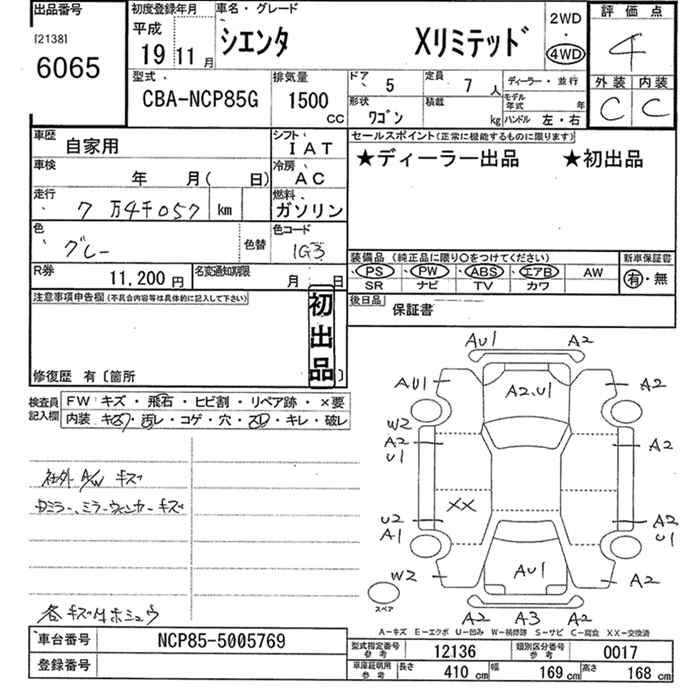 出品番号
[2138]
6065
初度登録年月
平成
19年11月
車名・グレード
シエンタ Xリミテッド
2WD
・
4WD
評価点
4
外装 内装
C C
型式・
CBA-NCP85G
排気量
1500
cc
ドア・ 5
定員・ 7 人
形状 ワゴン
積載 kg
ディーラー・並行
モデル年式 年
ハンドル 左・右
車歴 自家用
シフト・
IAT
車検 年 月( 日)
冷房・
AC
走行・ 7万4千057 km
燃料・
ガソリン
色・ グレー
色替
色コード
1G3
R券 11,200円
名変通知期限 月 日
セールスポイント(正常に機能するものに限ります)
★ディーラー出品 ★初出品
装備品(純正品に限り○をつけてください)
PS PW ABS エアB AW
SR ナビ TV カワ
新車保証書
有・無
後日品 保証書
注意事項申告欄(不具合内容等は具体的に記入して下さい)
初出品
修復歴 有〔箇所
検査員記入欄
FW キズ・飛石・ヒビ割・リペア跡・×要
内装 キズ・汚レ・コゲ・穴・スレ・キレ・破レ
社外A/W キズ
Dミラー、ミラーウィンカーキズ
各キズ ホシュウ
AU1 A2
AU1 A2.U1 A2
W2
A2 A2
U1
XX
U2 A2
A1 U1
W2 AU1 A2
スペア
A2 A3 A2
A-キズ E-エクボ U-凹み W-補修跡 S-サビ C-腐食 XX-交換済
車台番号 NCP85-5005769
登録番号
型式指定番号 参考 12136
類別区分番号 参考 0017
車庫証明用 参考 長さ 410 cm 幅 169 cm 高さ 168 cm